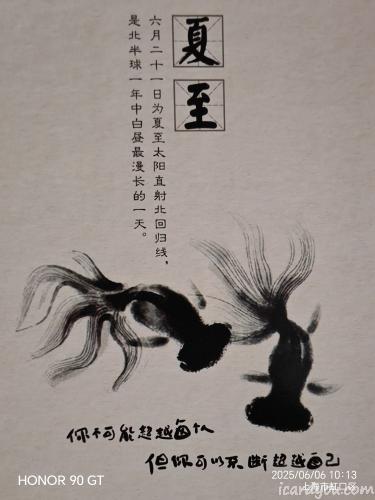 夏至
六月二十一日为夏至太阳直射北回归线，
是北半球一年中白昼最漫长的一天。
你不可能超越每个人
但你可以不断超越自己
HONOR 90 GT
2025/06/06 10:13
上海市虹口区
icarayou.com